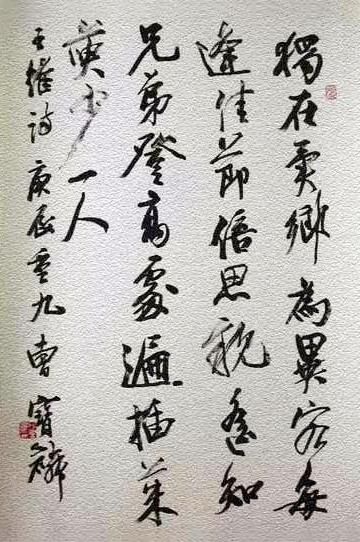 獨在異鄉為異客每
逢佳節倍思親遙知
兄弟登高處遍插茱
萸少一人
王維詩 庚辰重九 曹寶麟